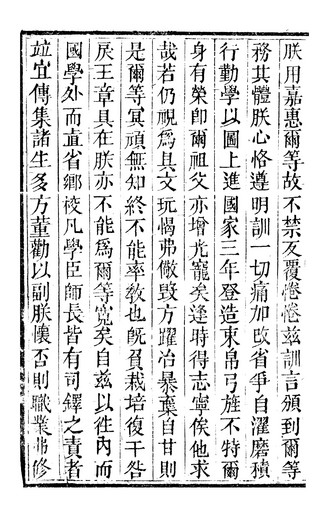 朕用嘉惠爾等故不禁反覆惓惓兹訓言頒到爾等
務共體朕心恪遵明訓一切痛加改省爭自濯磨積
行勤學以圖上進國家三年登造束帛弓旌不特爾
身有榮卽爾祖父亦增光寵矣逢時得志寧俟他求
哉若仍視爲具文玩愒弗儆毀方躍冶暴棄自甘則
是爾等冥頑無知終不能率敎也旣負栽培復干咎
戾王章具在朕亦不能爲爾等寬矣自兹以往內而
國學外而直省鄕校凡學臣師長皆有司鐸之責者
竝宜傳集諸生多方董勸以副朕懷否則職業弗修